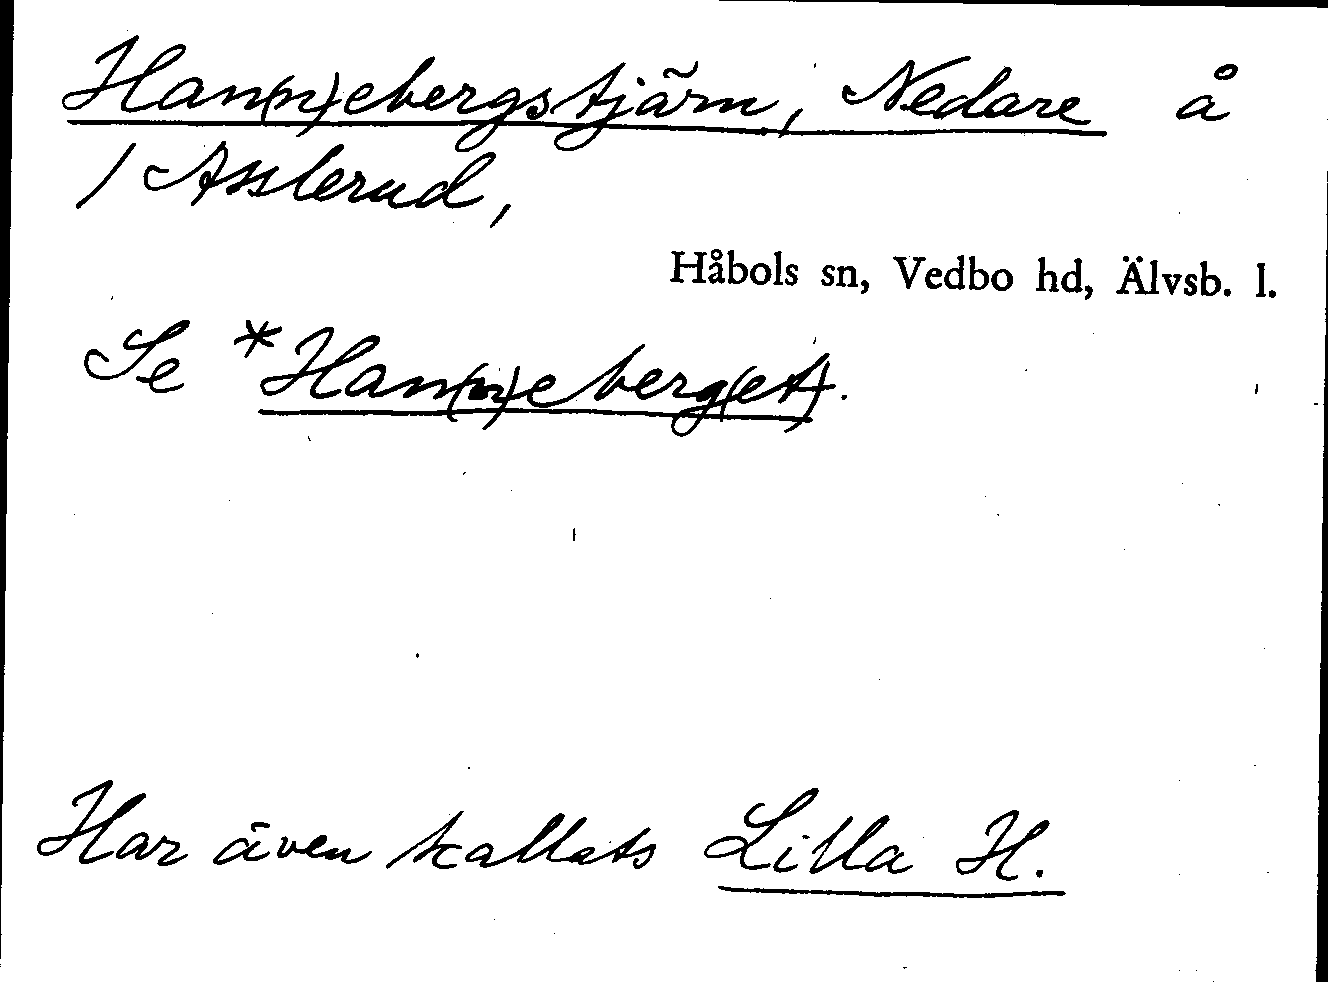 Han(n)ebergstjärn, Nedare å
/ Asslerud,
Håbols sn, Vedbo hd, Älvsb. l.
Se *Han(n)eberg(et).
Har även kallats Lilla H.